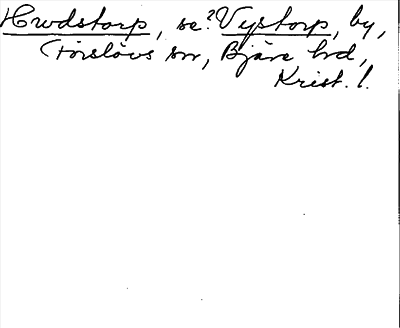 Hwdstorp, se ?Vystorp, by,
Förslövs sn, Bjäre hd,
Krist. l.